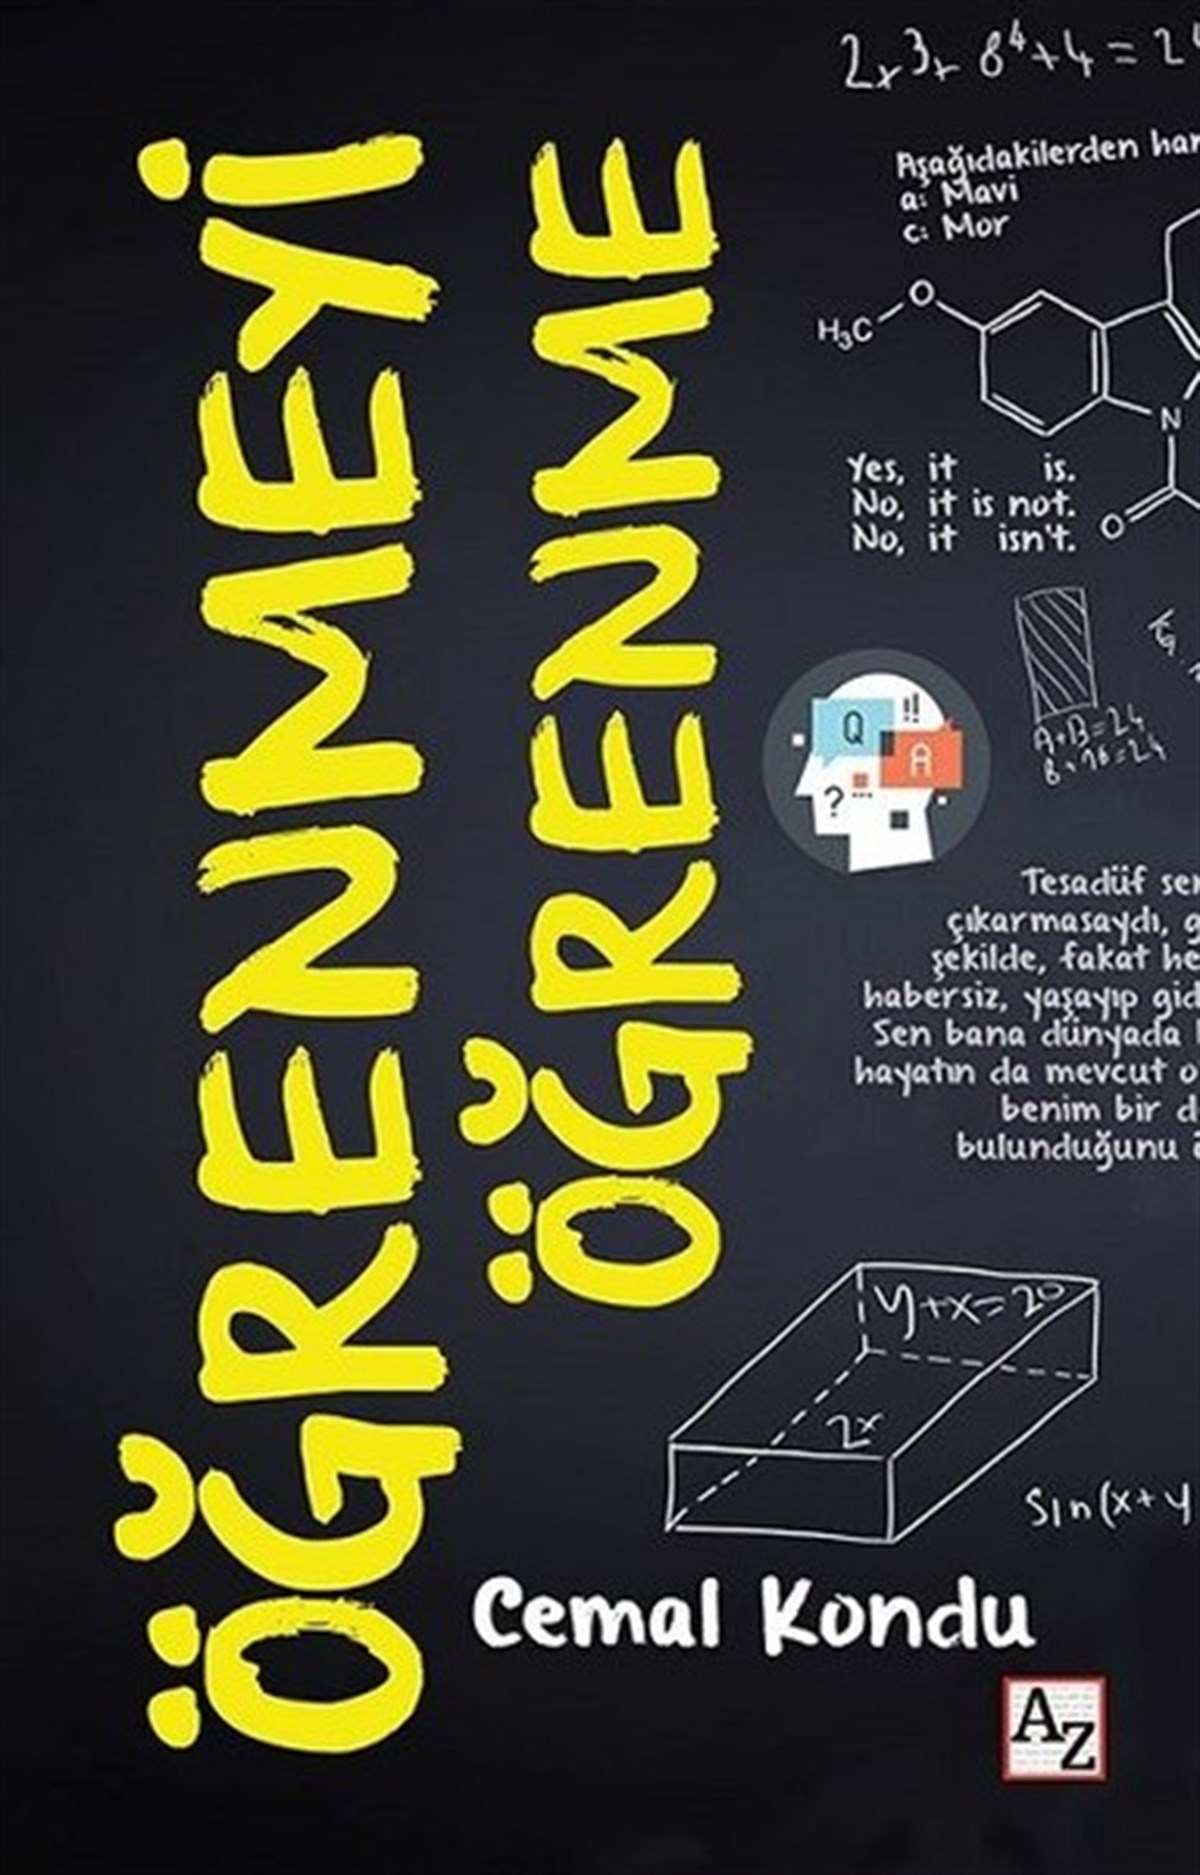 ÖĞRENMEYİ
ÖĞRENME
2x3x 8⁴+4 = 2
Aşağıdakilerden
a: Mavi
c: Mor
H₃C
O
N
O
Yes, it is.
No, it is not.
No, it isn't.
Q
!!
A
?
A+B=24
Tesadüf
çıkarmasaydı,
şekilde, fakat
habersiz, yaşayıp
Sen bana dünyada
hayatın da mevcut
benim bir
bulunduğunu
y+x=20
2x
Sin(x+y
Cemal Kondu
AZ